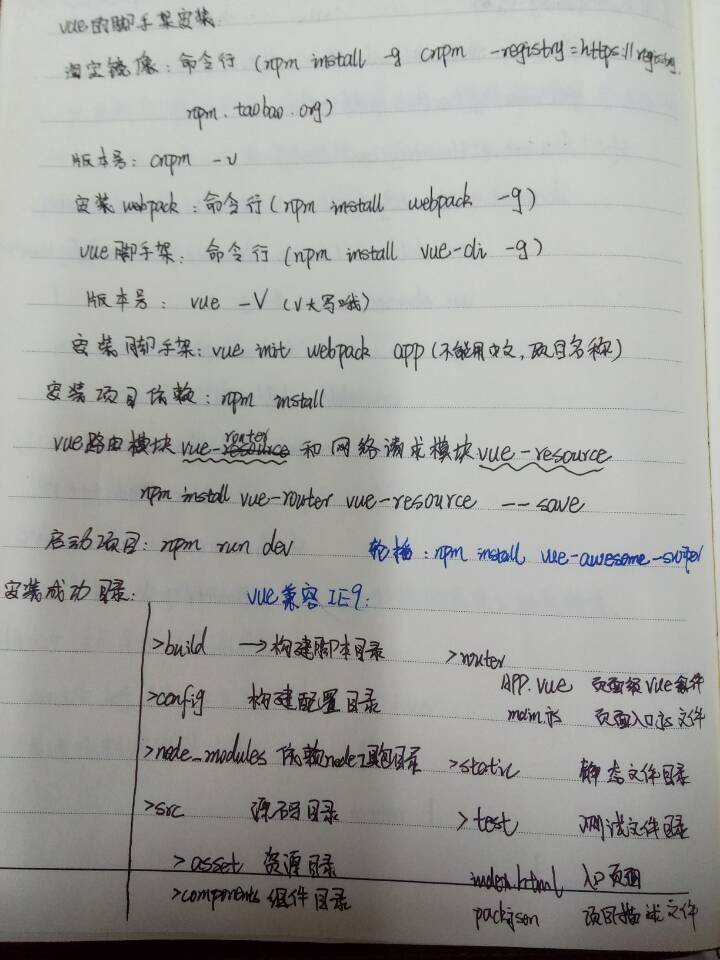 vue的脚手架安装
淘宝镜像：命令行（npm install -g cnpm -registry=https://registry.
npm.taobao.org）
版本号：cnpm -v
安装webpack：命令行（npm install webpack -g）
vue脚手架：命令行（npm install vue-cli -g）
版本号：vue -V（V大写哦）
安装脚手架：vue init webpack app（不能用中文，项目名称）
安装项目依赖：npm install
vue路由模块vue-router和网络请求模块vue-resource
npm install vue-router vue-resource --save
启动项目：npm run dev 轮播：npm install vue-awesome-swiper
安装成功目录： vue兼容IE9：
>build →构建脚本目录 >router
APP.vue 页面级vue组件
>config 构建配置目录 main.js 页面入口js文件
>node_modules 依赖node工具包目录 >static 静态文件目录
>src 源码目录 >test 测试文件目录
>asset 资源目录 index.html 入口页面
>components 组件目录 packjson 项目描述文件